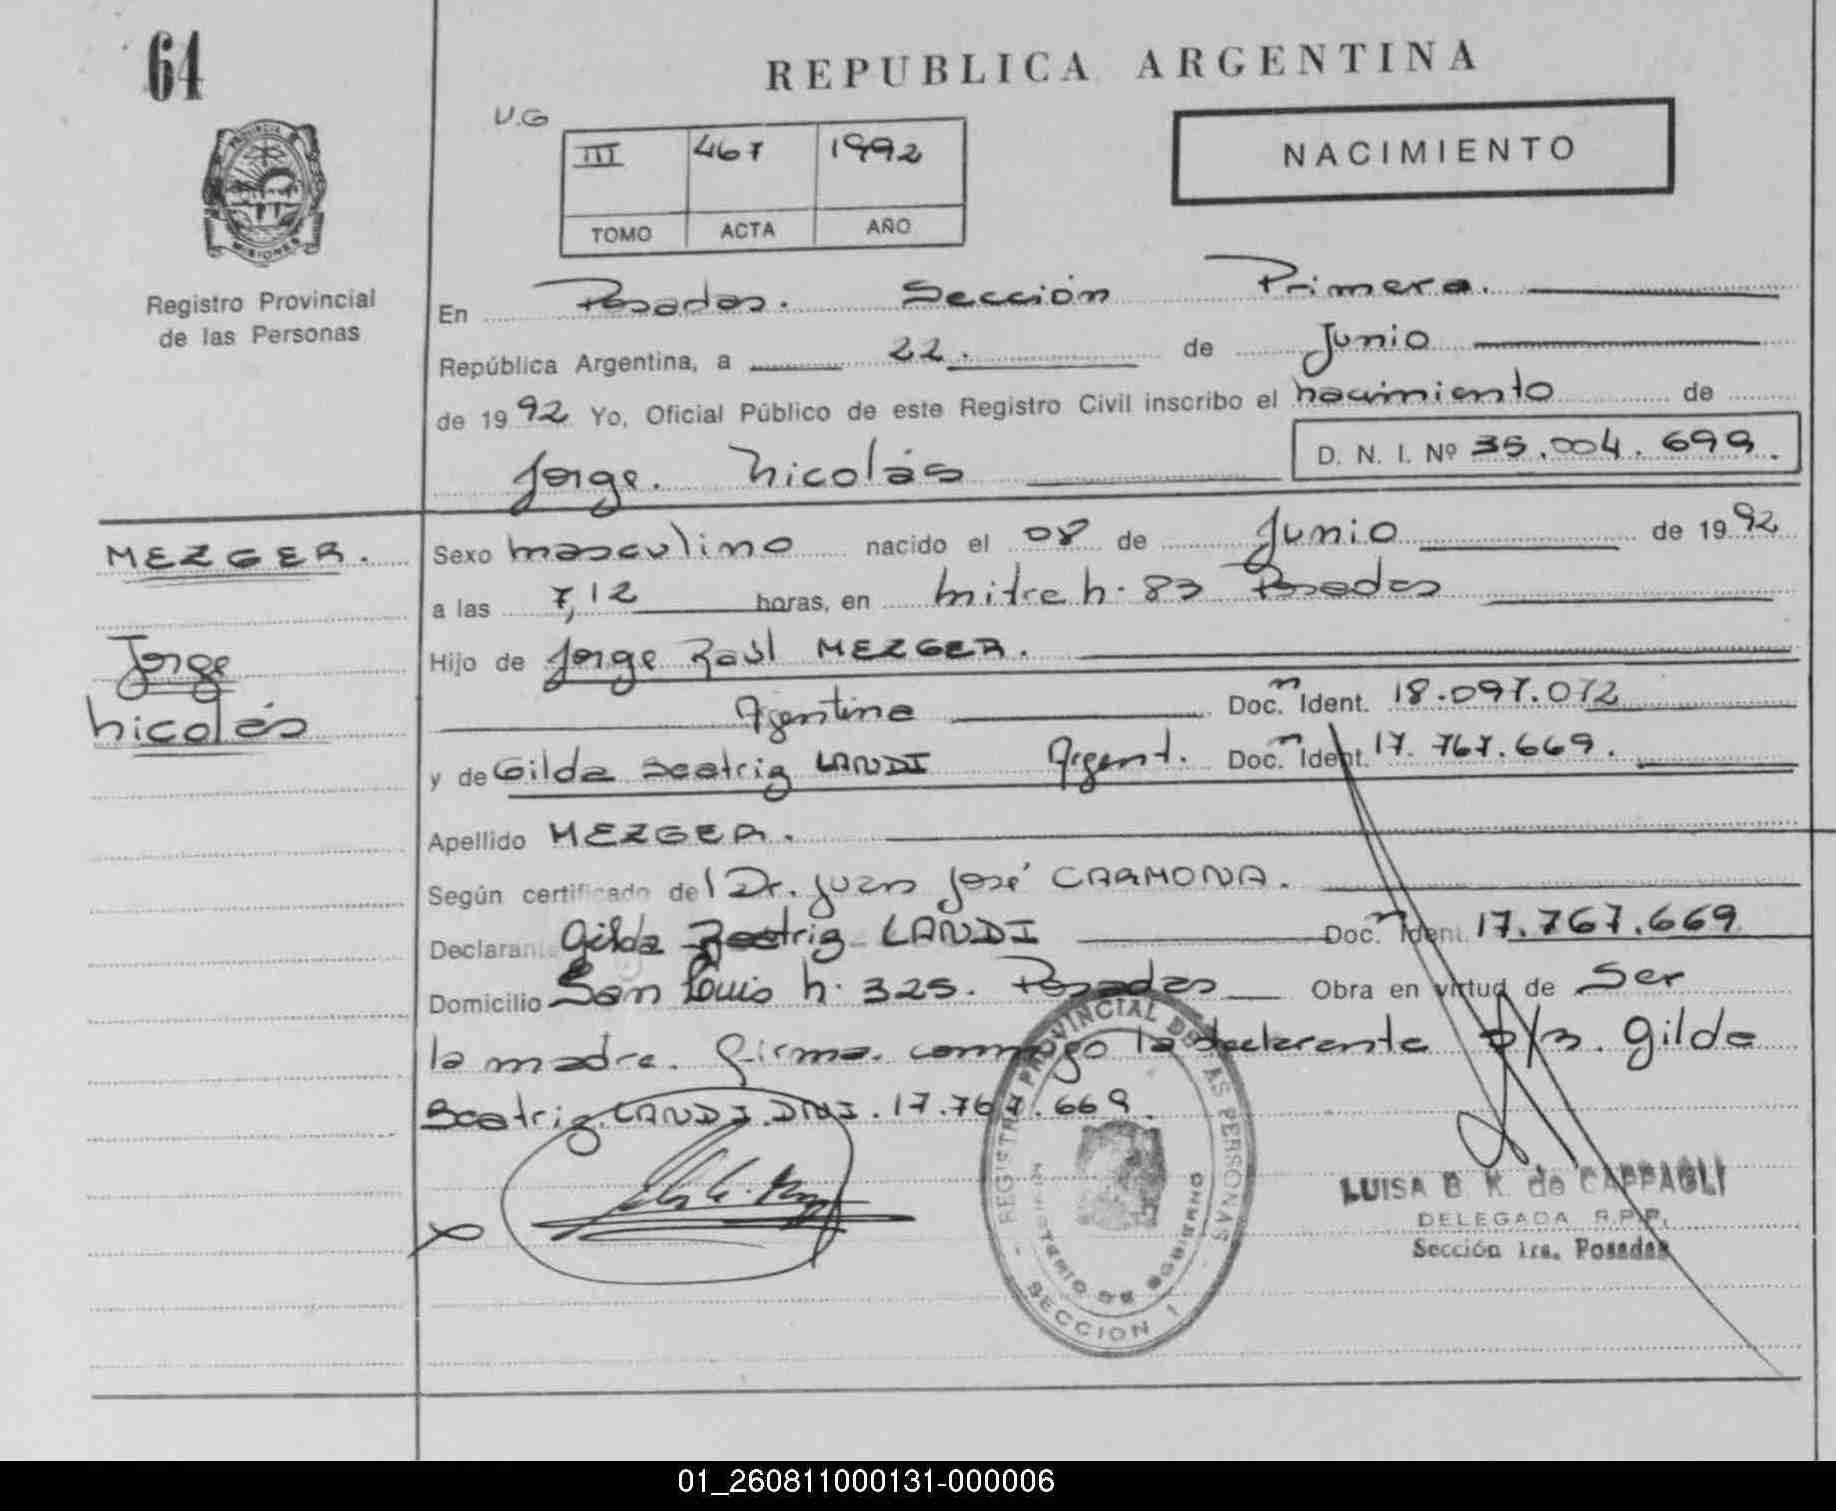 64
REPUBLICA ARGENTINA
U.G
III 467 1992
TOMO ACTA AÑO
NACIMIENTO
PROVINCIA DE
MISIONES
Registro Provincial
de las Personas
En Posadas. Sección Primera.
República Argentina, a 22. de Junio
de 1992 Yo, Oficial Público de este Registro Civil inscribo el nacimiento de
Jorge. Nicolás D. N. I. Nº 35.004.699.
MEZGER.
Jorge
Nicolás
Sexo masculino nacido el 08 de Junio de 1992
a las 7,12 horas, en Mitre n. 83 Posadas
Hijo de Jorge Raúl MEZGER.
Argentina Doc.n Ident. 18.097.072
y de Gilda Beatriz LANDI Argent. Doc.n Ident. 17.767.669.
Apellido MEZGER.
Según certificado del Dr. Juan José CARMONA.
Declarante Gilda Beatriz LANDI Doc.n Ident. 17.767.669
Domicilio San Luis n. 325. Posadas Obra en virtud de Ser
la madre. Firma conmigo la declarante Gilda
Beatriz LANDI. DNI. 17.767.669.
REGISTRO PROVINCIAL DE LAS PERSONAS
MINISTERIO DE GOBIERNO
SECCION 1
LUISA B. K. de CAPPAGLI
DELEGADA R.P.P.
Sección 1ra. Posadas
01_260811000131-000006